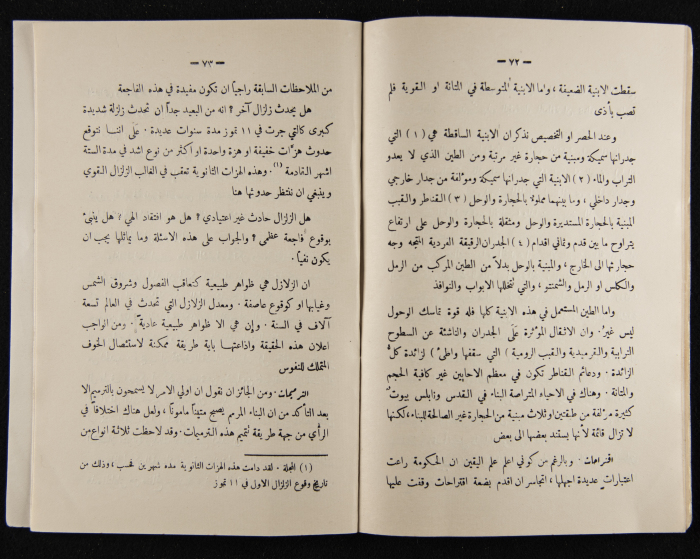 — ٧٢ —
سقطت الابنية الضعيفة ، واما الابنية المتوسطة في المتانة او القوية فلم
تصب بأذى
وعند الحصر او التخصيص نذكران الابنية الساقطة هي ( ١ ) التي
جدرانها سميكة ومبنية من حجارة غير مرتبة ومن الطين الذي لا يعدو
التراب والماء ( ٢ ) الابنية التي جدرانها سميكة ومؤلفة من جدار خارجي
وجدار داخلي ، وما بينهما مملوء بالحجارة والوحل ( ٣ ) القناطر والقبب
المبنية بالحجارة المستديرة والوحل ومثقلة بالحجارة والوحل على ارتفاع
يتراوح ما بين قدم وثماني اقدام ( ٤ ) الجدران الرقيقة الفردية المتجه وجه
حجارتها الى الخارج ، والمبنية بالوحل بدلاً من الطين المركب من الرمل
والكلس او الرمل والشمنتو ، والتي تتخللها الابواب والنوافذ
واما الطين المستعمل في هذه الابنية كلها فله قوة تماسك الوحول
ليس غير. وان الاثقال المؤثرة عَلَى الجدران والناشئة عن السطوح
الترابية والقرميدية والقبب الرومية ( التي سقفها واطئ ) لزائدة كلّ
الزائدة . ودعائم القناطر تكون في معظم الاحايين غير كافية الحجم
والمتانة . وهناك في الاحياء المتراصة البناء في القدس ونابلس بيوت
كثيرة مؤلفة من طبقتين او ثلاث مبنية من الحجارة غير الصالحة للبناء، لكنها
لا تزال قائمة لأنها يستند بعضها الى بعض
اقتراحات · وبالرغم من كوني اعلم علم اليقين ان الحكومة راعت
اعتبارات عديدة اجهلها ، اتجاسر ان اقدم بضعة اقتراحات وقفت عليها
— ٧٣ —
من الملاحظات السابقة راجياً ان تكون مفيدة في هذه الفاجعة
هل يحدث زلزال آخر ؟ انه من البعيد جداً ان تحدث زلزلة شديدة
كبرى كالتي جرت في ١١ تموز مدة سنوات عديدة . عَلَى اننا نتوقع
حدوث هزات خفيفة او هزة واحدة او اكثر من نوع اشد في مدة الستة
اشهر القادمة (١). وهذه الهزات الثانوية تعقب في الغالب الزلزال القوي
وينبغي ان ننتظر حدوثها هنا
هل الزلزال حادث غير اعتيادي ؟ هل هو افتقاد الهي ؟ هل ينبئ
بوقوع فاجعة عظمى ؟ والجواب على هذه الاسئلة وما يماثلها يجب ان
يكون نفياً .
ان الزلازل هي ظواهر طبيعية كتعاقب الفصول وشروق الشمس
وغيابها او كوقوع عاصفة . ومعدل الزلازل التي تحدث في العالم تسعة
آلاف في السنة . وإن هي الا ظواهر طبيعية عادية . ومن الواجب
اعلان هذه الحقيقة واذاعتها باية طريقة ممكنة لاستئصال الخوف
المتملك للنفوس
الترميمات · ومن الجائز ان نقول ان اولي الامر لا يسمحون بالترميم الا
بعد التأكد من ان البناء المرمم يصبح متيناً مأموناً ، ولعل هناك اختلافاً في
الرأي من جهة طريقة تتميم هذه الترميمات . وقد لاحظت ثلاثة انواع من
( ١ ) المجلة · لقد دامت هذه الهزات الثانوية مدة شهرين فحسب ، وذلك من
تاريخ وقوع الزلزال الاول في ١١ تموز